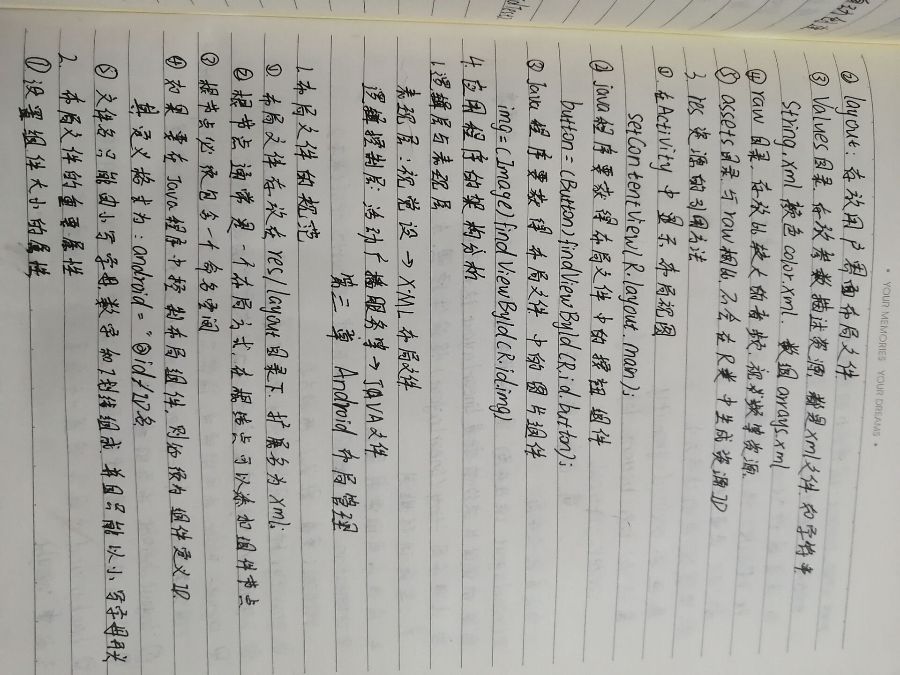 YOUR MEMORIES YOUR DREAMS
② layout: 存放用户界面布局文件
③ Values目录 存放参数描述资源 都是xml文件 如字符串
String.xml 颜色 color.xml. 数组 arrays.xml
④ raw目录. 存放比较大的音频.视频等资源.
⑤ assets目录与row相似.不会在R类中生成资源ID
3. res资源的引用方法
① 在Activity中显示布局视图
setContentView(R.layout.main);
② java程序要获得布局文件中的按钮组件
button=(Button)findViewById(R.id.button);
③ Java程序要获得布局文件中的图片组件
img=(Image)findViewById(R.id.img)
4. 应用程序的架构分析
1.逻辑层与表现层
表现层:视觉设→XML布局文件
逻辑控制层:活动广播服务等→JAVA文件
第三章 Android布局管理
1.布局文件的规范
① 布局文件存放在res/layout目录下.扩展名为xml;
② 根节点通常是一个布局方式.在根结点可以添加组件节点
③ 根节点必须包含一个命名空间
④ 如果要在Java程序中控制布局组件.则必须为组件定义ID
其定义格式为:android="@id/ID名
⑤ 文件名只能由小写字母数字和下划线组成 并且只能以小写字母开头
2. 布局文件的重要属性
① 设置组件大小的属性